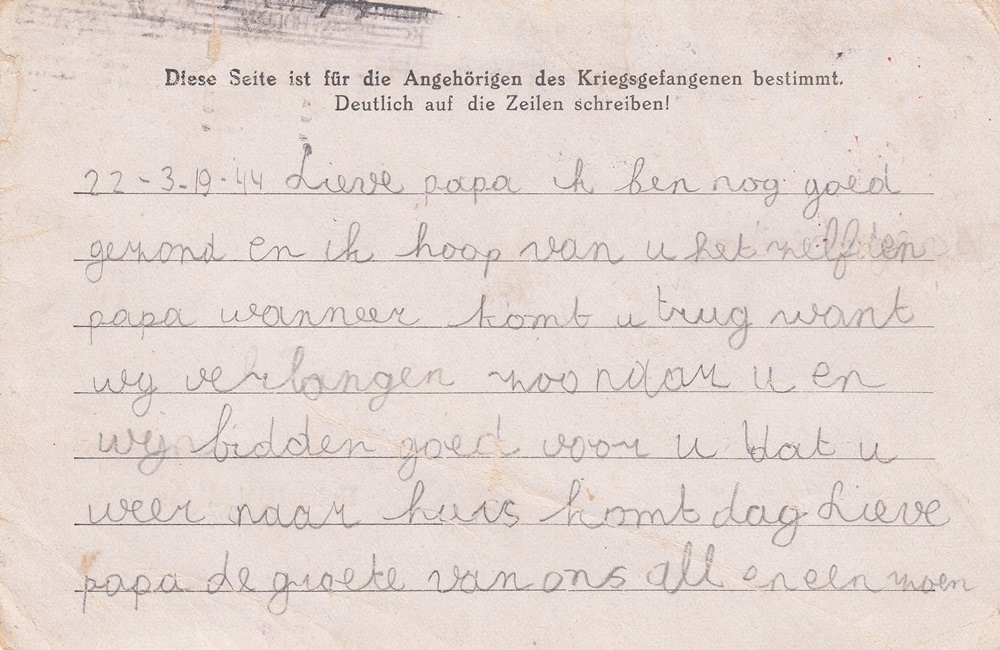 Diese Seite ist für die Angehörigen des Kriegsgefangenen bestimmt.
Deutlich auf die Zeilen schreiben!
22-3-19-44 Lieve papa ik ben nog goed
gezond en ik hoop van u het zelfden
papa wanneer komt u trug want
wij verlangen zoo naar u en
wij bidden goed voor u dat u
weer naar huis komt dag Lieve
papa de groete van ons all en een zoen